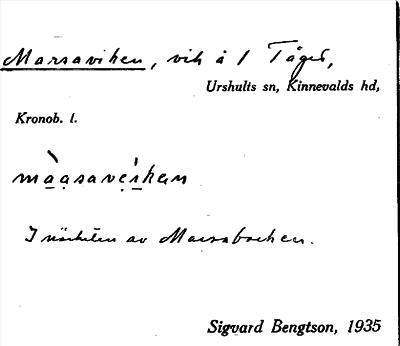 Marsaviken, vik å 1 Tåged,
Urshults sn, Kinnevalds hd,
Kronob. l.
màasavẹ́iken
I närheten av Marsabacken.
Sigvard Bengtson, 1935